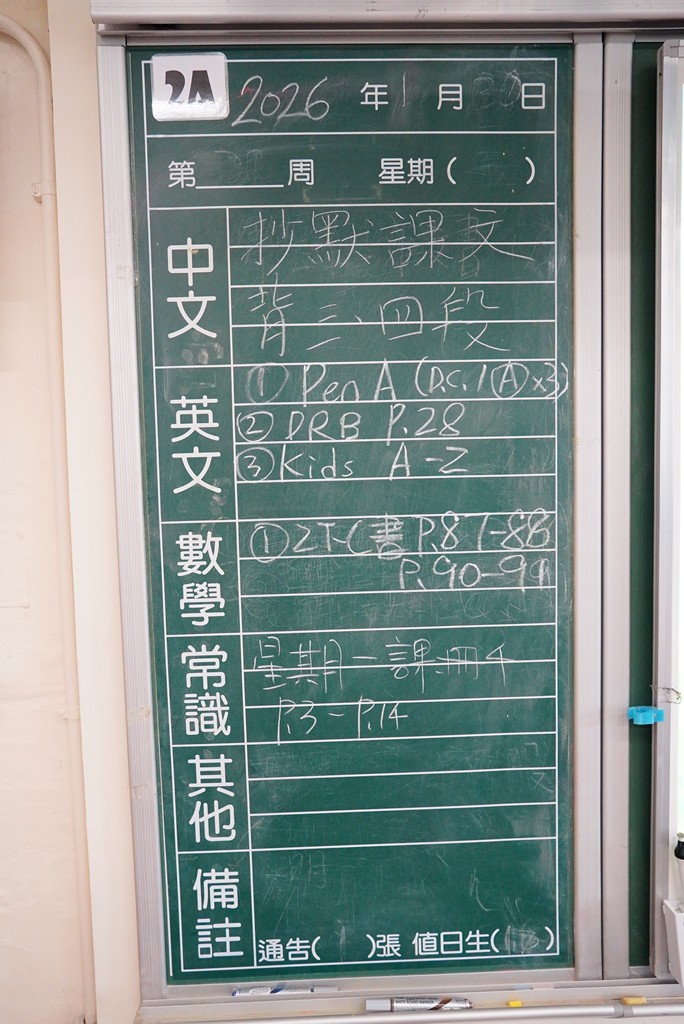 2A 2026 年 1 月 30 日
第 周 星期( )
中文
抄默課文
背三、四段
英文
① Pen A (D.C. 1 Ⓐ x3)
② DRB P.28
③ Kids A-Z
數學
① 2T-C書 P.87-88
P.90-91
常識
星期一課冊4
P.3-P.14
其他
備註
通告( )張 值日生( )
WHITE BOARD MARKER